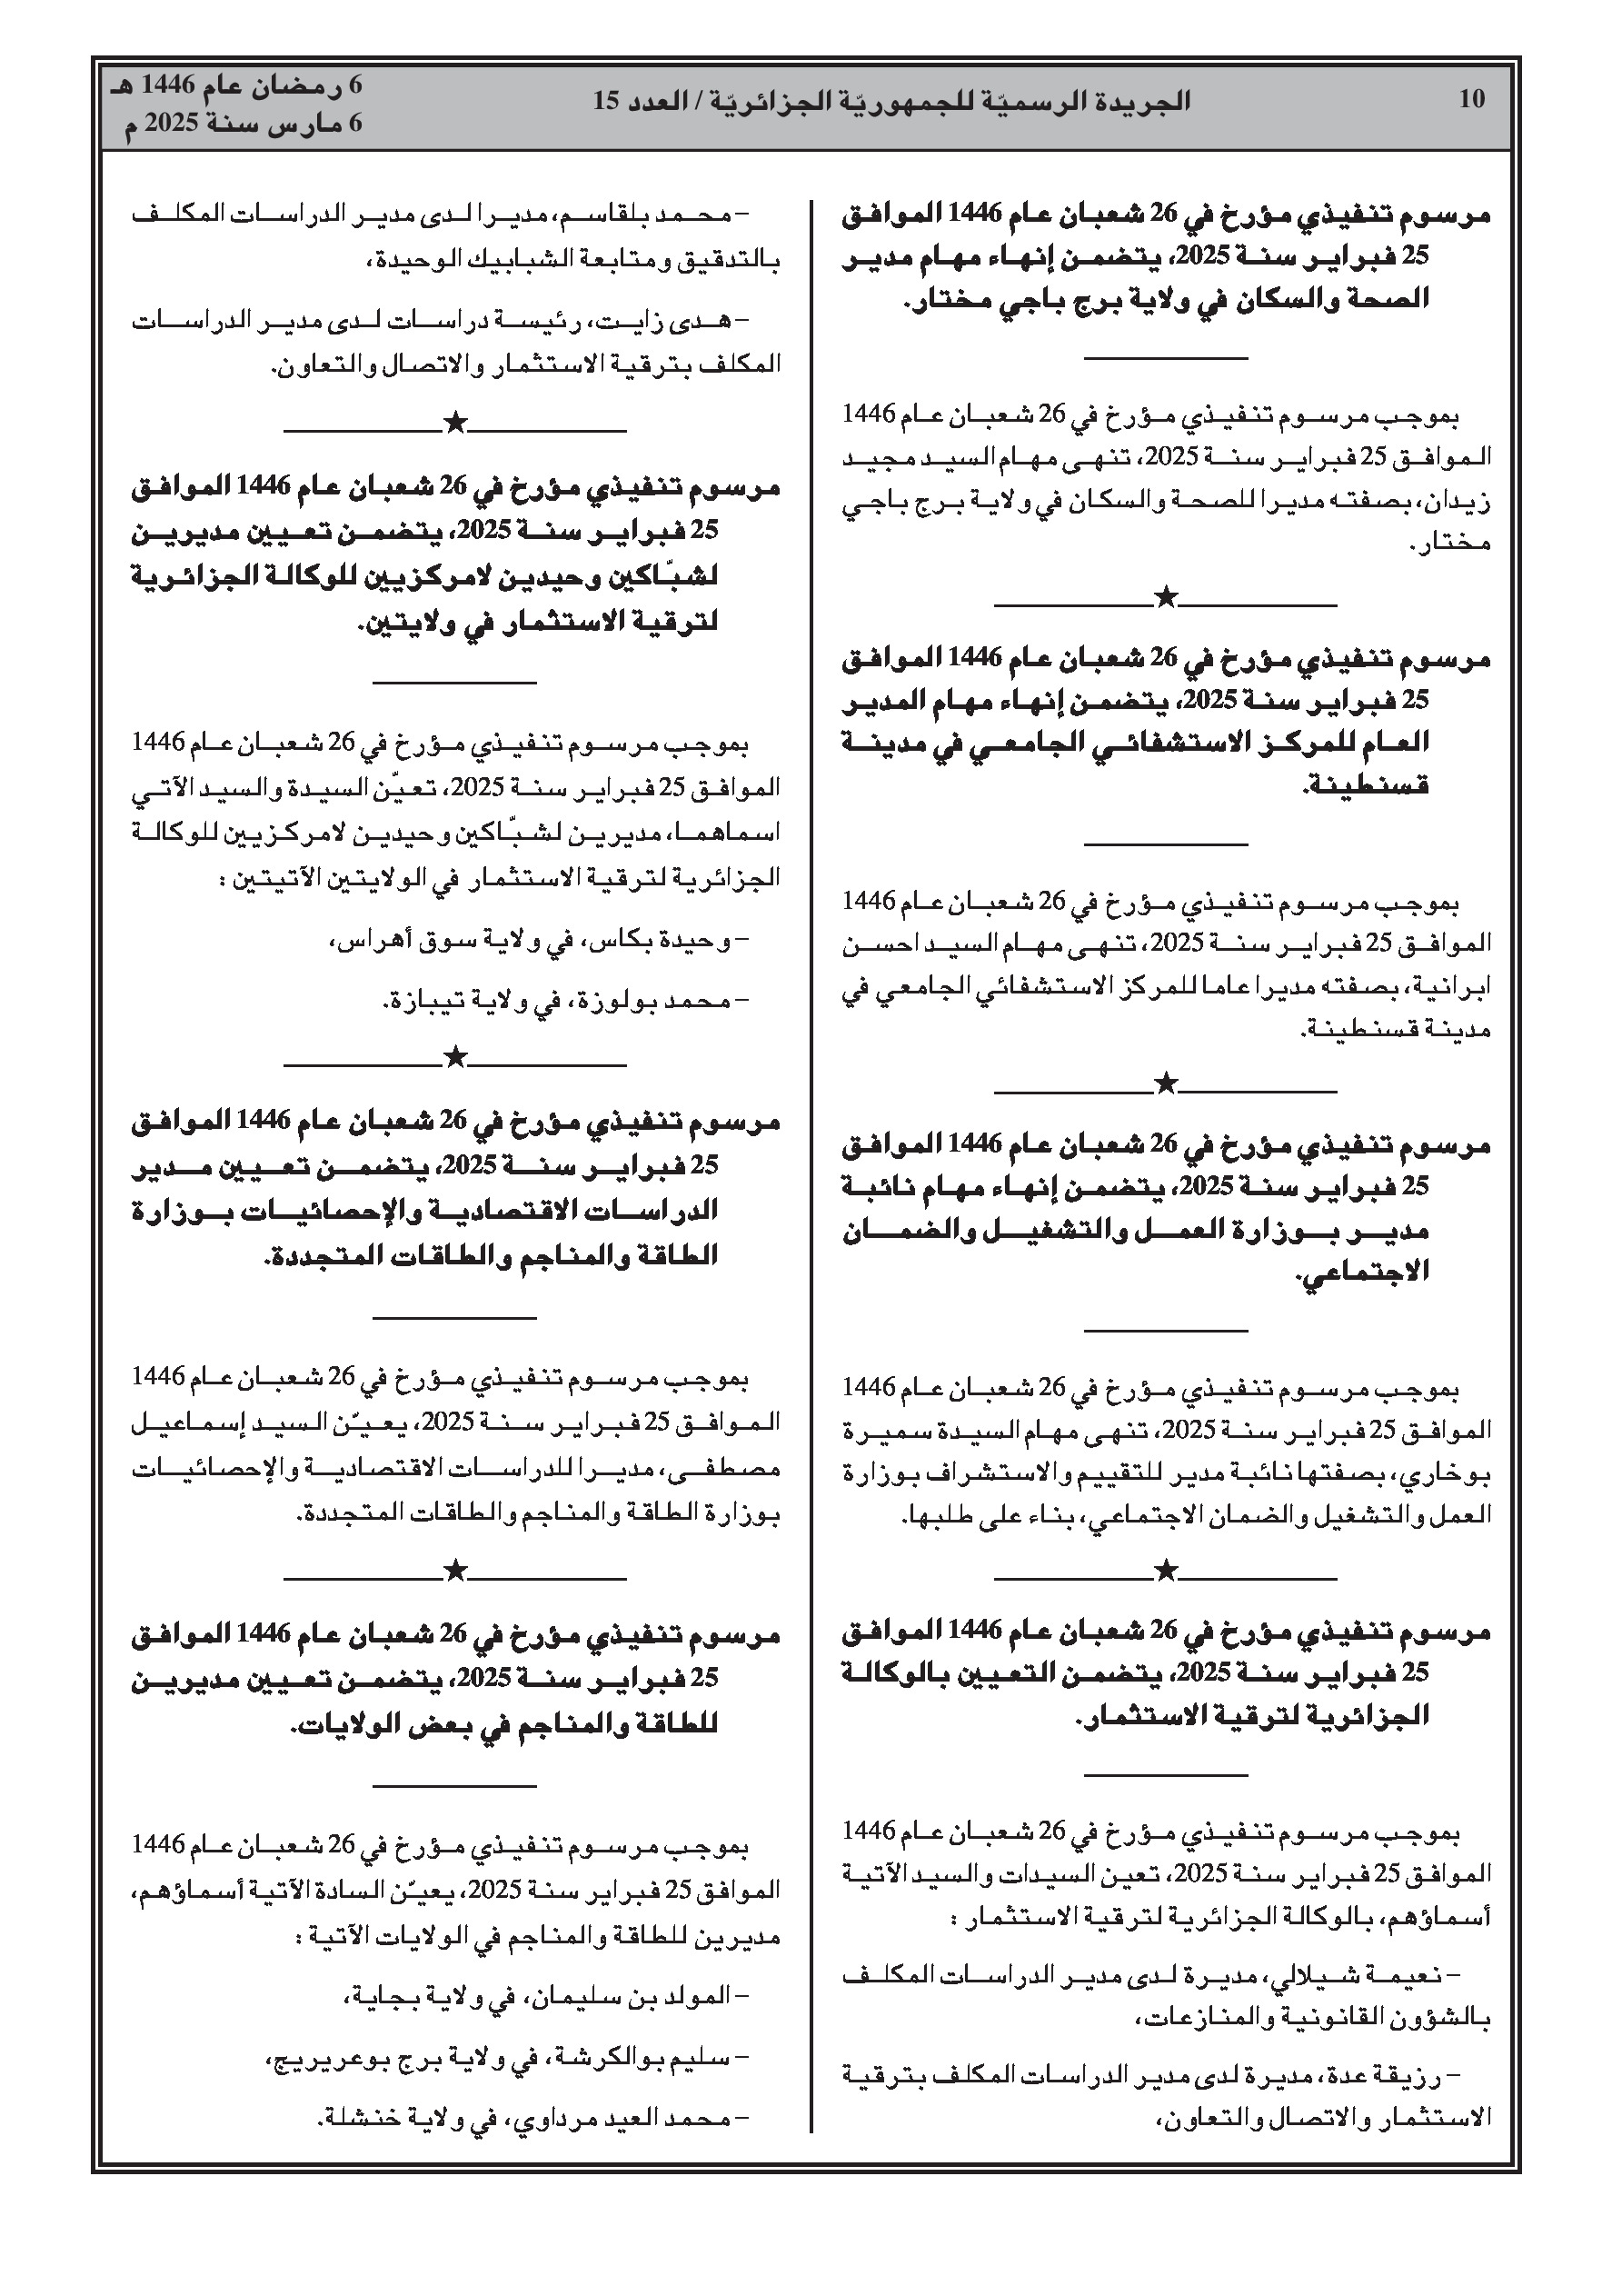 10
الجريدة الرسميّة للجمهوريّة الجزائريّة / العدد 15
6 رمضان عام 1446 هـ
6 مارس سنة 2025 م
مرسوم تنفيذي مؤرخ في 26 شعبان عام 1446 الموافق
25 فبراير سنة 2025، يتضمن إنهاء مهام مدير
الصحة والسكان في ولاية برج باجي مختار.
بموجب مرسوم تنفيذي مؤرخ في 26 شعبان عام 1446
الموافق 25 فبراير سنة 2025، تنهى مهام السيد مجيد
زيدان، بصفته مديرا للصحة والسكان في ولاية برج باجي
مختار.
مرسوم تنفيذي مؤرخ في 26 شعبان عام 1446 الموافق
25 فبراير سنة 2025، يتضمن إنهاء مهام المدير
العام للمركز الاستشفائي الجامعي في مدينة
قسنطينة.
بموجب مرسوم تنفيذي مؤرخ في 26 شعبان عام 1446
الموافق 25 فبراير سنة 2025، تنهى مهام السيد احسن
ابرانية، بصفته مديرا عاما للمركز الاستشفائي الجامعي في
مدينة قسنطينة.
مرسوم تنفيذي مؤرخ في 26 شعبان عام 1446 الموافق
25 فبراير سنة 2025، يتضمن إنهاء مهام نائبة
مدير بوزارة العمل والتشغيل والضمان
الاجتماعي.
بموجب مرسوم تنفيذي مؤرخ في 26 شعبان عام 1446
الموافق 25 فبراير سنة 2025، تنهى مهام السيدة سميرة
بوخاري، بصفتها نائبة مدير للتقييم والاستشراف بوزارة
العمل والتشغيل والضمان الاجتماعي، بناء على طلبها.
مرسوم تنفيذي مؤرخ في 26 شعبان عام 1446 الموافق
25 فبراير سنة 2025، يتضمن التعيين بالوكالة
الجزائرية لترقية الاستثمار.
بموجب مرسوم تنفيذي مؤرخ في 26 شعبان عام 1446
الموافق 25 فبراير سنة 2025، تعين السيدات والسيد الآتية
أسماؤهم، بالوكالة الجزائرية لترقية الاستثمار :
– نعيمة شيلالي، مديرة لدى مدير الدراسات المكلف
بالشؤون القانونية والمنازعات،
– رزيقة عدة، مديرة لدى مدير الدراسات المكلف بترقية
الاستثمار والاتصال والتعاون،
– محمد بلقاسم، مديرا لدى مدير الدراسات المكلف
بالتدقيق ومتابعة الشبابيك الوحيدة،
– هدى زايت، رئيسة دراسات لدى مدير الدراسات
المكلف بترقية الاستثمار والاتصال والتعاون.
مرسوم تنفيذي مؤرخ في 26 شعبان عام 1446 الموافق
25 فبراير سنة 2025، يتضمن تعيين مديرين
لشبّاكين وحيدين لامركزيين للوكالة الجزائرية
لترقية الاستثمار في ولايتين.
بموجب مرسوم تنفيذي مؤرخ في 26 شعبان عام 1446
الموافق 25 فبراير سنة 2025، تعيّن السيدة والسيد الآتي
اسماهما، مديرين لشبّاكين وحيدين لامركزيين للوكالة
الجزائرية لترقية الاستثمار في الولايتين الآتيتين :
– وحيدة بكاس، في ولاية سوق أهراس،
– محمد بولوزة، في ولاية تيبازة.
مرسوم تنفيذي مؤرخ في 26 شعبان عام 1446 الموافق
25 فبراير سنة 2025، يتضمن تعيين مدير
الدراسات الاقتصادية والإحصائيات بوزارة
الطاقة والمناجم والطاقات المتجددة.
بموجب مرسوم تنفيذي مؤرخ في 26 شعبان عام 1446
الموافق 25 فبراير سنة 2025، يعيّن السيد إسماعيل
مصطفى، مديرا للدراسات الاقتصادية والإحصائيات
بوزارة الطاقة والمناجم والطاقات المتجددة.
مرسوم تنفيذي مؤرخ في 26 شعبان عام 1446 الموافق
25 فبراير سنة 2025، يتضمن تعيين مديرين
للطاقة والمناجم في بعض الولايات.
بموجب مرسوم تنفيذي مؤرخ في 26 شعبان عام 1446
الموافق 25 فبراير سنة 2025، يعيّن السادة الآتية أسماؤهم،
مديرين للطاقة والمناجم في الولايات الآتية :
– المولد بن سليمان، في ولاية بجاية،
– سليم بوالكرشة، في ولاية برج بوعريريج،
– محمد العيد مرداوي، في ولاية خنشلة.